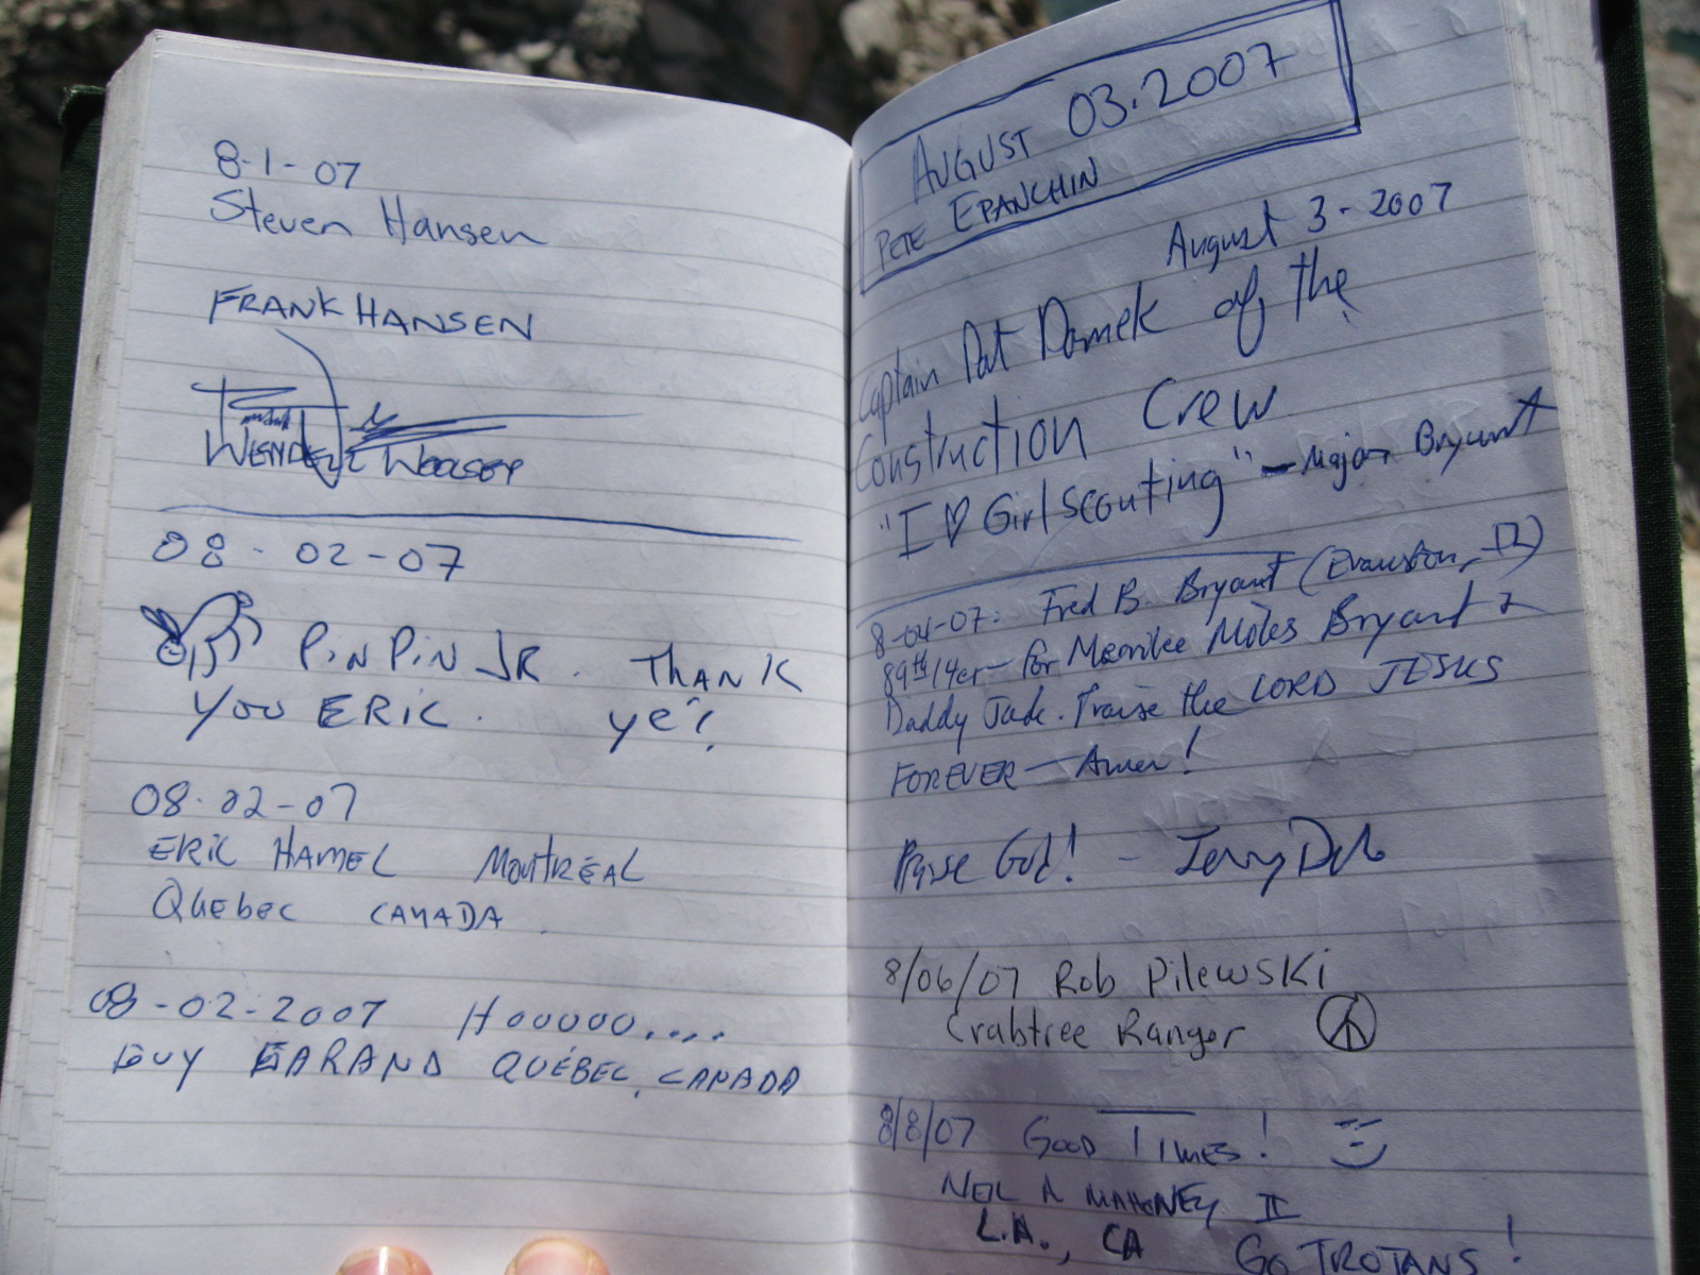 8-1-07
Steven Hansen
FRANK HANSEN
08-02-07
PiN PiN JR. THANK
YOU ERiC. YE
08-02-07
ERiC HAMEL MONTREAL
QUEbEC CANADA
08-02-2007 HOUUUU....
GUY GARAND QUÉBEC, CANADA
AUGUST 03.2007
PETE EPANCHIN
August 3-2007
Captain Pat Domek of the
Construction Crew
"I ♡ Girl Scouting" - Major Bryant
8-04-07: Fred B. Bryant (Evanston, IL)
89th 14er - for Moles Bryant &
Daddy Jack. Praise the LORD JESUS
FOREVER - Amen!
Praise God! - Jerry
8/06/07 Rob Pilewski
Crabtree Ranger
8/8/07 GOOD TIMES!
NEIL A MAHONEY II
L.A., CA GO TROJANS!